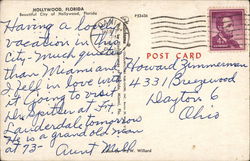 HOLLYWOOD, FLORIDA
Beautiful City of Hollywood, Florida
Having a lovely
vacation in this
city. Much quieter
than Miami and
I fell in love with
it. Going to visit
Dr. in Ft.
Lauderdale tomorrow
He is a grand old man
at 73- Aunt Moll
POST CARD
Howard Zimmerman
4331
Dayton 6
Ohio
Willard